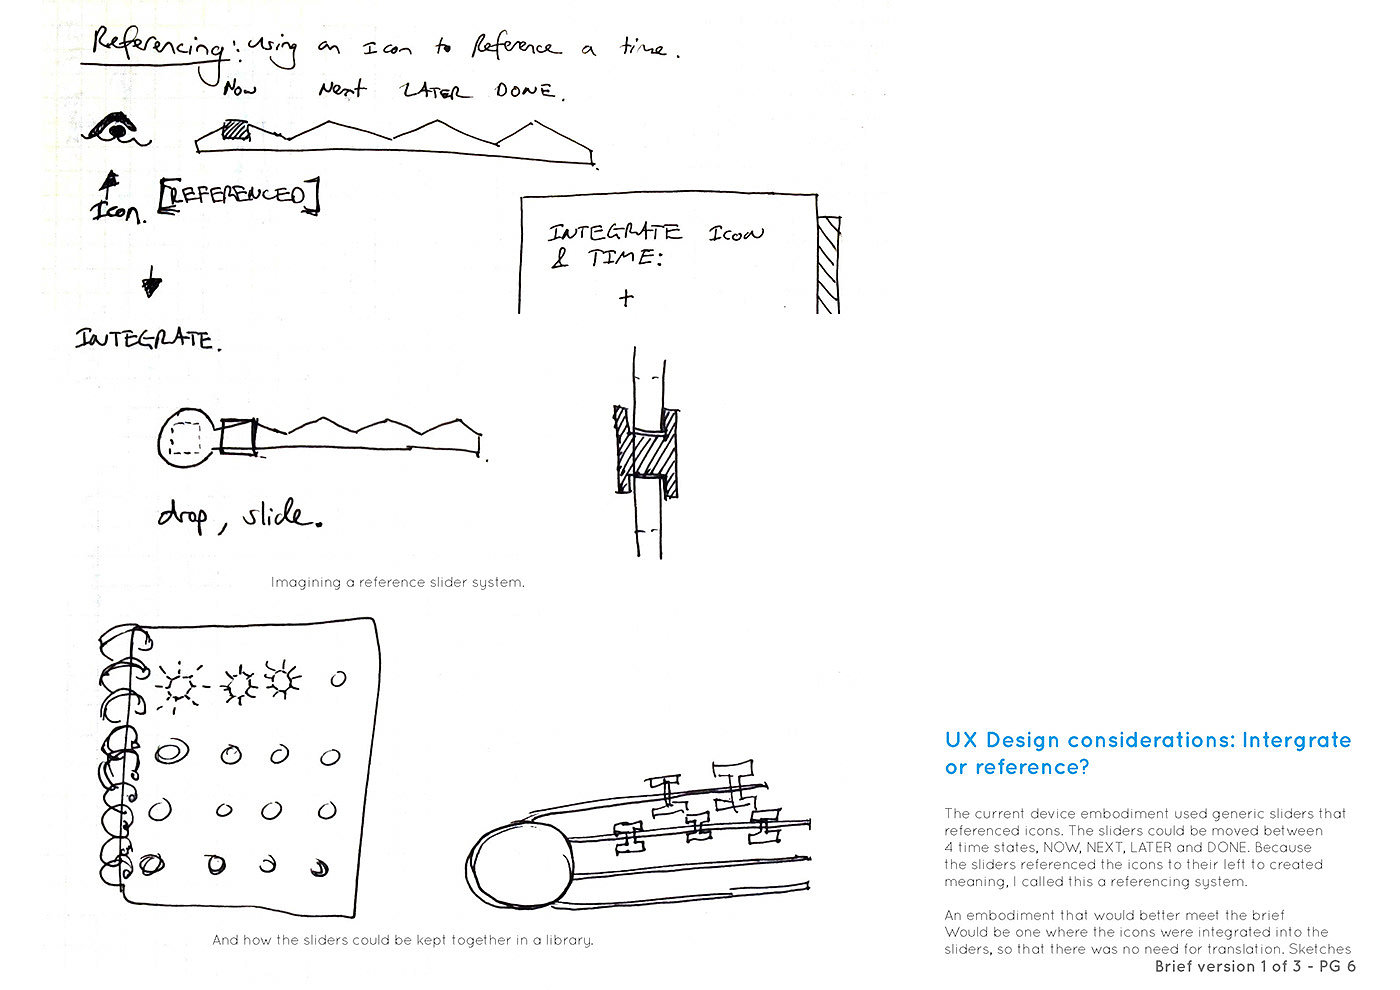 Referencing: Using an Icon to Reference a time.
Now Next LATER DONE.
Icon. [REFERENCED]
INTEGRATE ICON
& TIME:
+
INTEGRATE.
drop, slide.
Imagining a reference slider system.
And how the sliders could be kept together in a library.
UX Design considerations: Intergrate
or reference?
The current device embodiment used generic sliders that
referenced icons. The sliders could be moved between
4 time states, NOW, NEXT, LATER and DONE. Because
the sliders referenced the icons to their left to created
meaning, I called this a referencing system.
An embodiment that would better meet the brief
Would be one where the icons were integrated into the
sliders, so that there was no need for translation. Sketches
Brief version 1 of 3 - PG 6